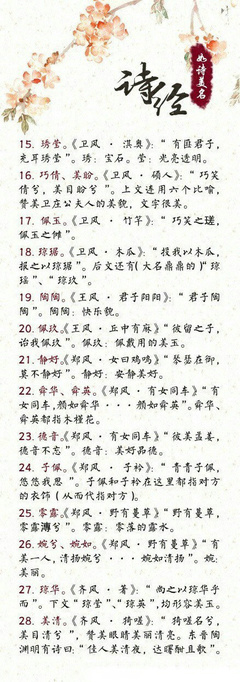 诗经
如诗美名
15. 琇莹。《卫风·淇奥》：“有匪君子，
充耳琇莹”。琇：宝石。莹：光亮透明。
16. 巧倩、美盼。《卫风·硕人》：“巧笑
倩兮，美目盼兮”。上文还用六个比喻，
赞美卫在公夫人的美貌，文字很美。
17. 佩玉。《卫风·竹竿》：“巧笑之瑳，
佩玉之傩”。
18. 琼琚。《卫风·木瓜》：“投我以木瓜，
报之以琼琚”。后文还有(大名鼎鼎的)“琼
瑶”、“琼玖”。
19. 陶陶。《王风·君子阳阳》：“君子陶
陶”。陶陶：快乐貌。
20. 佩玖。《王风·丘中有麻》“彼留之子，
诒我佩玖”。佩玖：佩戴用的美玉。
21. 静好。《郑风·女曰鸡鸣》“琴瑟在御，
莫不静好”。静好：安静美好。
22. 舜华、舜英。《郑风·有女同车》“有
女同车，颜如舜华···颜如舜英”。舜华、
舜英都指木槿花。
23. 德音。《郑风·有女同车》“彼美孟姜，
德音不忘”。德音：美好品德。
24. 子佩。《郑风·子衿》：“青青子佩，
悠悠我思”。子佩和子衿在这里都指对方
的衣饰（从而代指对方）。
25. 零露。《郑风·野有蔓草》“
零露漙兮”。零露：零落的露水。
26. 婉兮、婉如。《郑风·野有蔓草》“有
美一人，清扬婉兮···婉如清扬”。婉：
美丽。
27. 琼华。《齐风·著》：“尚之以琼华乎
而”。下文“琼莹”、“琼英”，均形容美玉。
28. 美清。《郑风·猗嗟》：“猗嗟名兮，
美目清兮”，赞美眼睛美丽清亮。东晋陶
渊明有诗曰：“佳人美清夜，达曙酣且歌”。